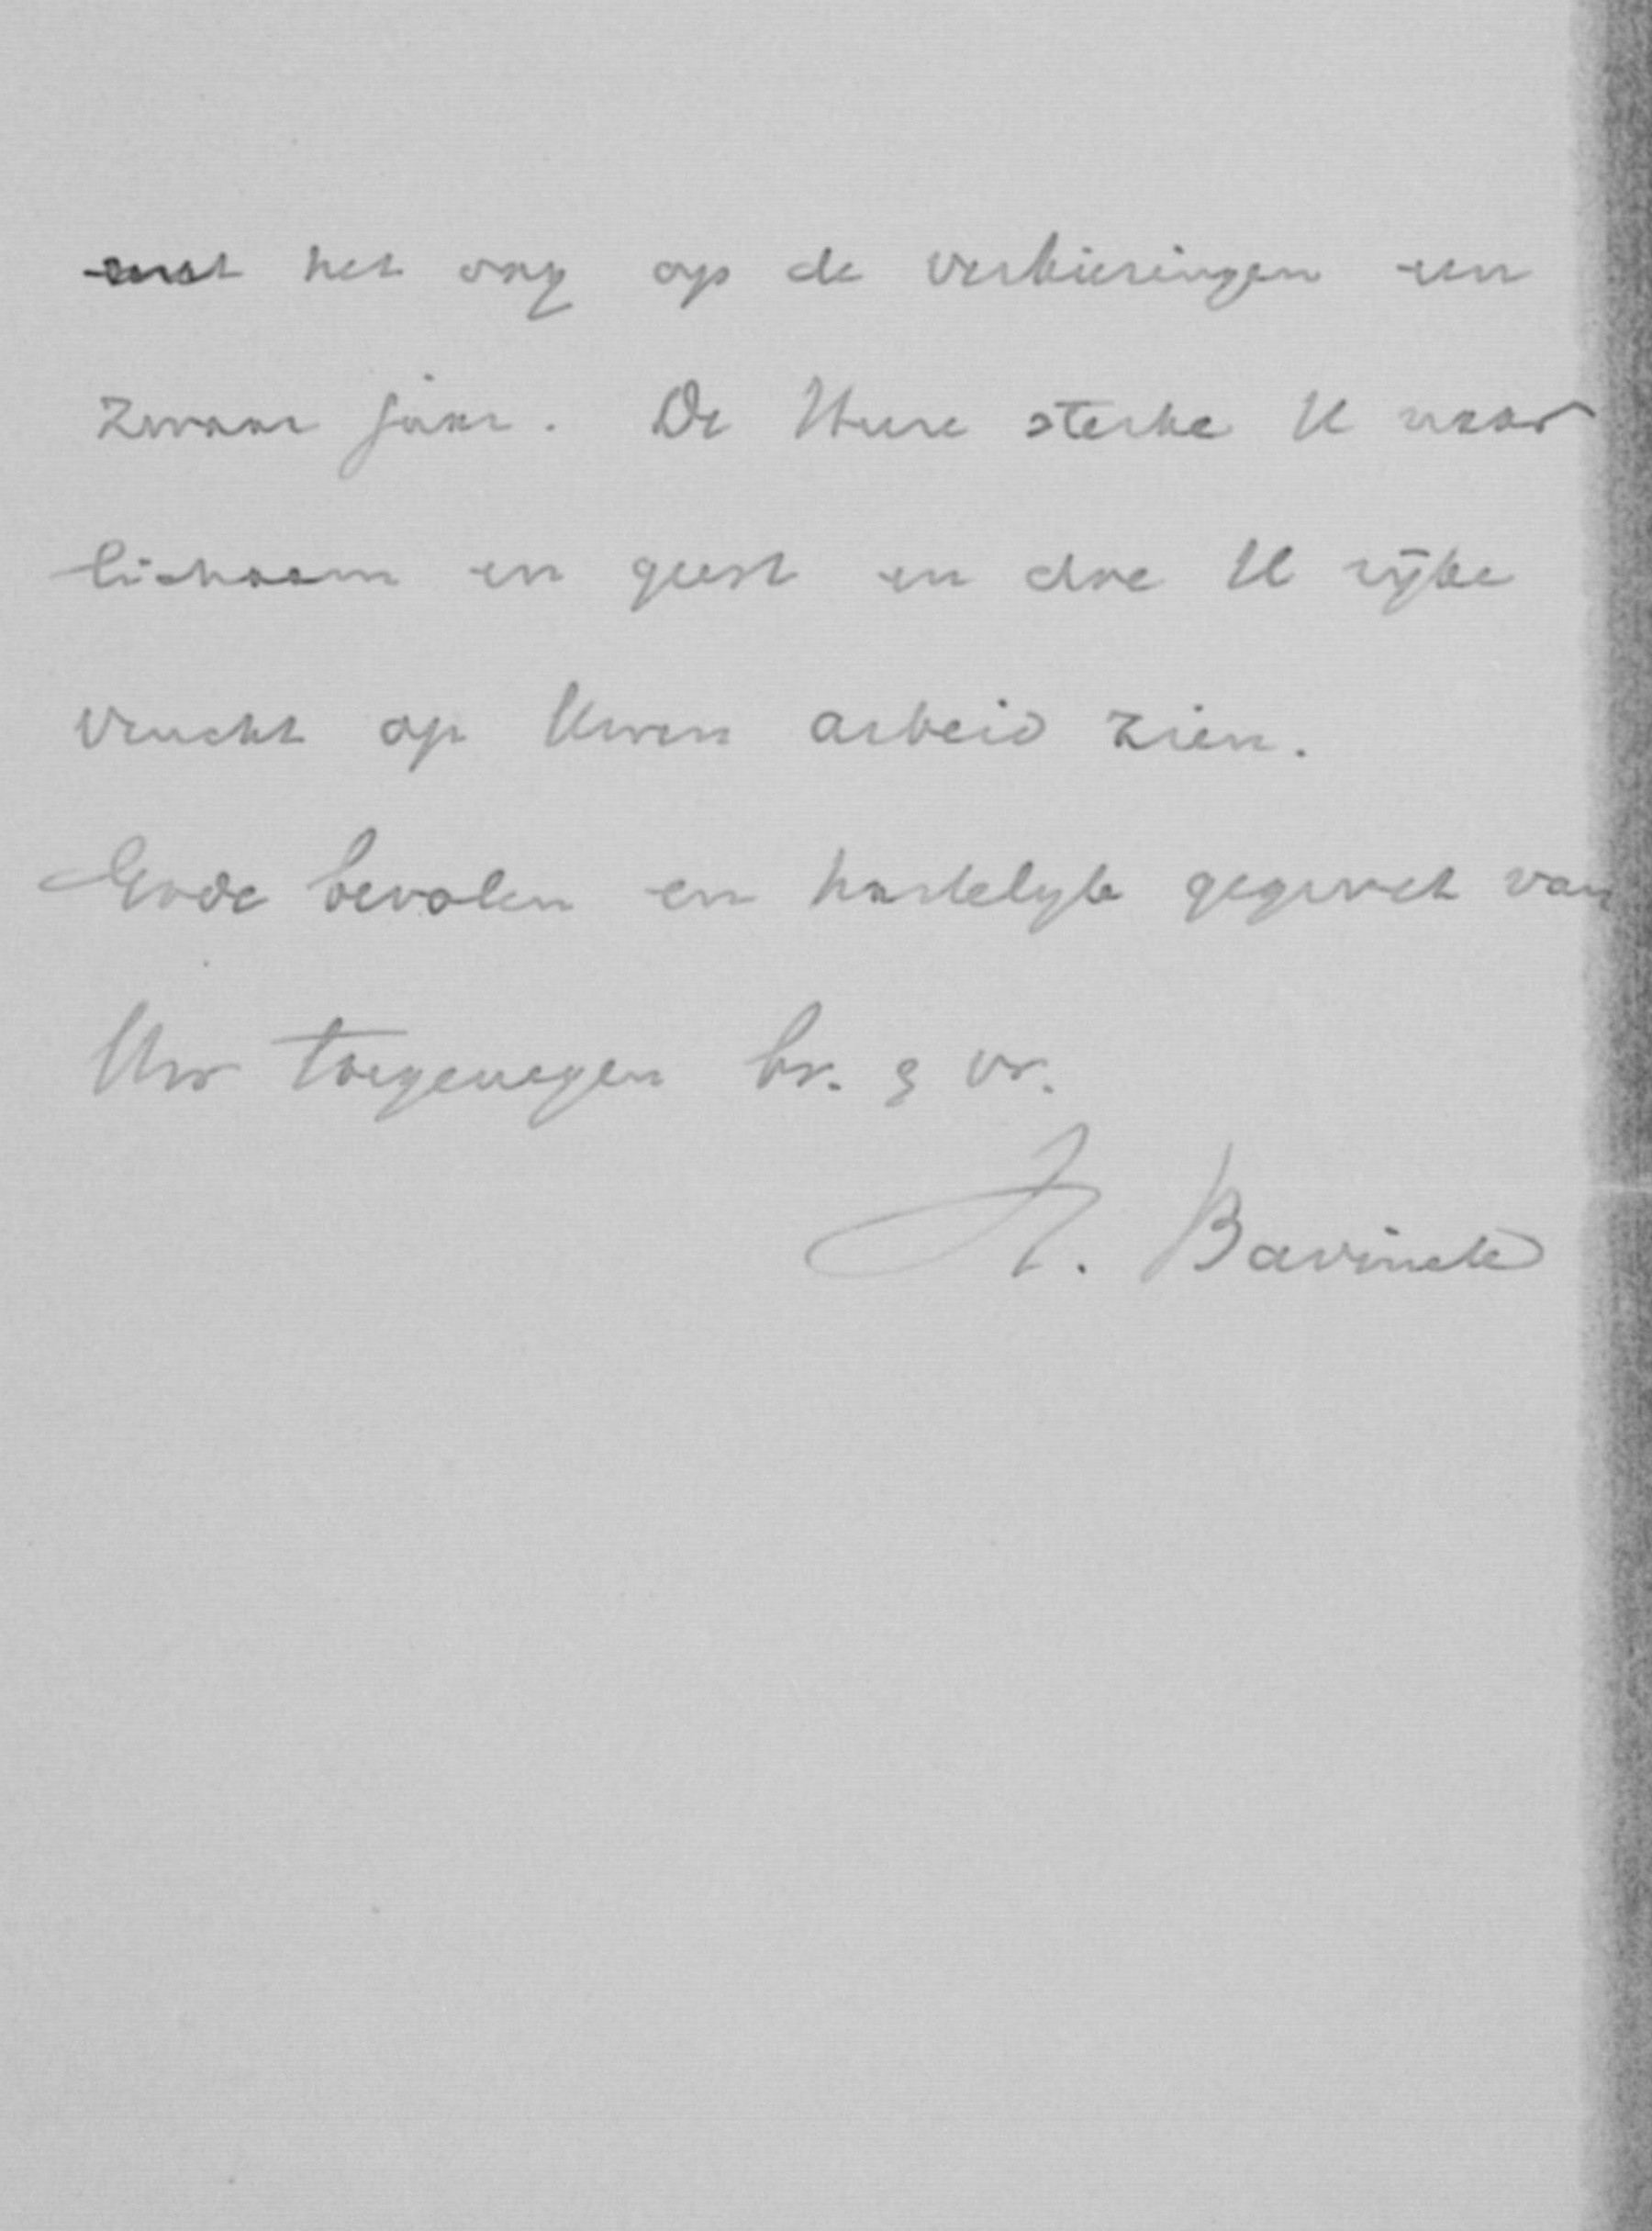 met het oog op de verkiezingen een
zwaar jaar. De Heere sterke U naar
lichaam en geest en doe U rijke
vrucht op Uwen arbeid zien.
Gode bevolen en hartelijk gegroet van
Uw toegenegen br. & vr.
H. Bavinck